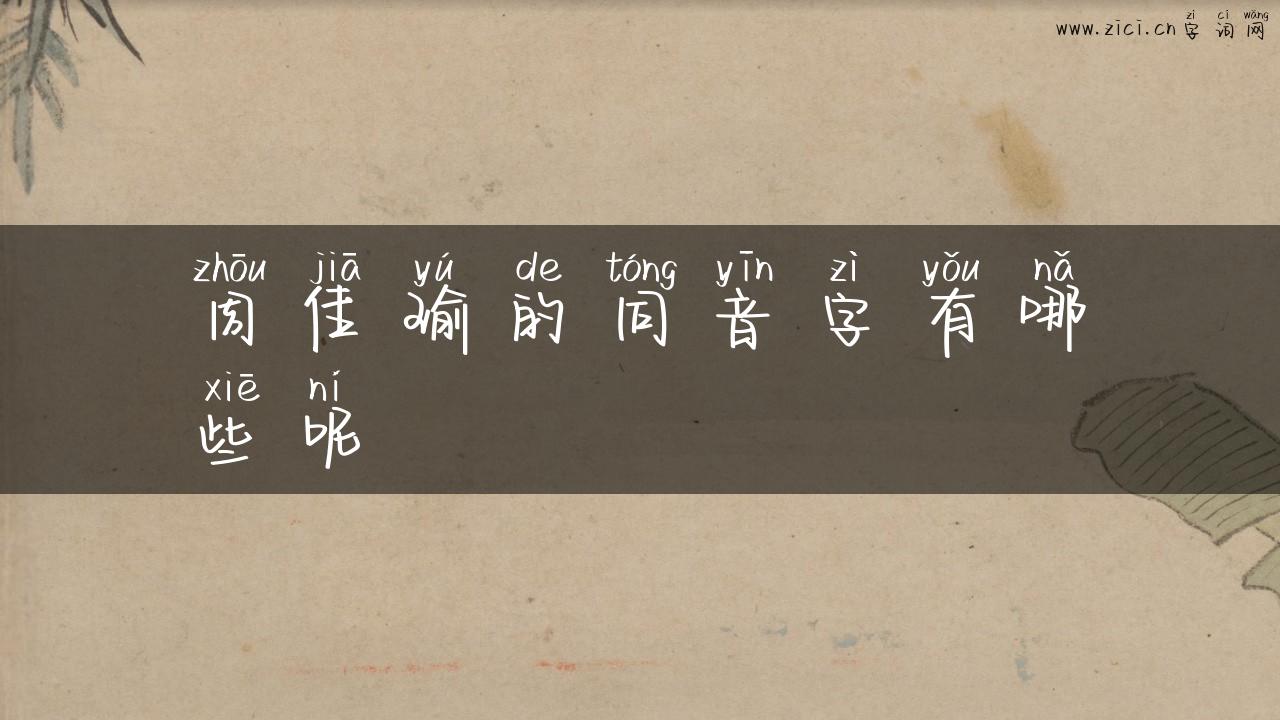 zì cí wǎng
www.zici.cn 字 词 网
zhōu jiā yú de tóng yīn zì yǒu nǎ
周 佳 瑜 的 同 音 字 有 哪
xiē ní
些 呢